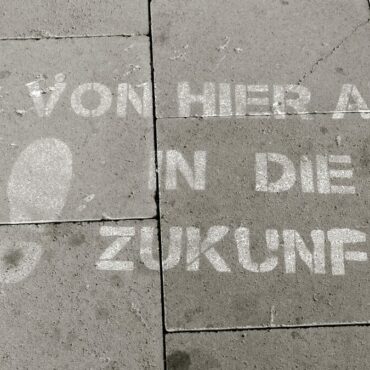 VON HIER A
IN DIE
ZUKUNF